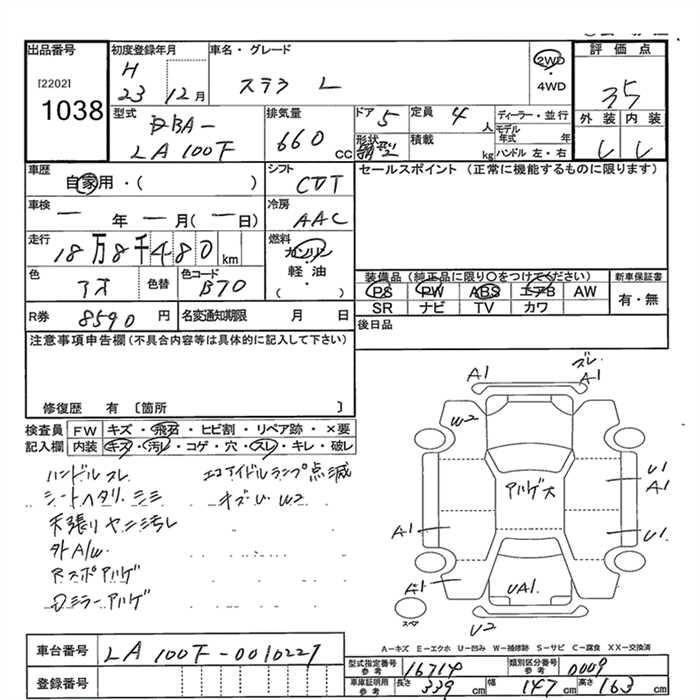 出品番号
[2202]
1038
初度登録年月
H
23 12月
車名・グレード
ステラ L
2WD
・
4WD
評価点
35
外装 内装
型式
DBA-
LA100F
排気量
660 cc
ドア 5
定員 4 人
形状
積載 kg
ディーラー・並行
モデル年式 年
ハンドル 左・右
車歴
自家用・( )
シフト
CVT
セールスポイント (正常に機能するものに限ります)
車検
年 月( 日)
冷房
AAC
走行
18万8千480km
燃料
ガソリン
・
軽油
( )
色
アオ
色替
色コード
B70
装備品 (純正品に限り〇をつけてください)
PS PW ABS エアB AW
SR ナビ TV カワ
新車保証書
有・無
R券 8590 円
名変通知期限 月 日
後日品
注意事項申告欄(不具合内容等は具体的に記入して下さい)
修復歴 有 〔箇所 〕
検査員
記入欄
FW キズ・飛石・ヒビ割・リペア跡・×要
内装 キズ・汚レ・コゲ・穴・スレ・キレ・破レ
ハンドルスレ
シートヘタリ、シミ
天張りヤニ汚レ
外A/W
Rスポアルゲ
Dミラーアルゲ
エコアイドルランプ点滅
キズU W2
A1
ズレ
A1
W2
アルゲ大
U1
A1
A1
U1
A1
UA1.
スペア
U2
A-キズ E-エクボ U-凹み W-補修跡 S-サビ C-腐食 XX-交換済
車台番号
LA100F-0010227
登録番号
型式指定番号 参考 16714
類別区分番号 参考 0009
車庫証明用 参考
長さ 339 cm
幅 147 cm
高さ 163 cm